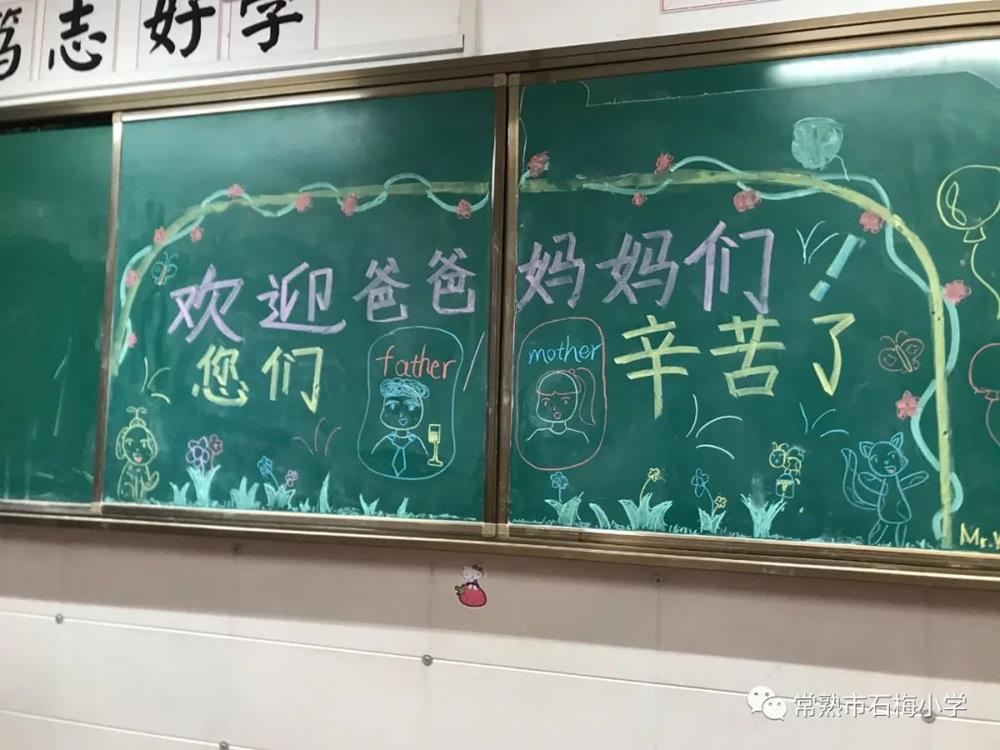 笃志好学
欢迎爸爸妈妈们！
您们辛苦了
father
mother
Mr.
常熟市石梅小学